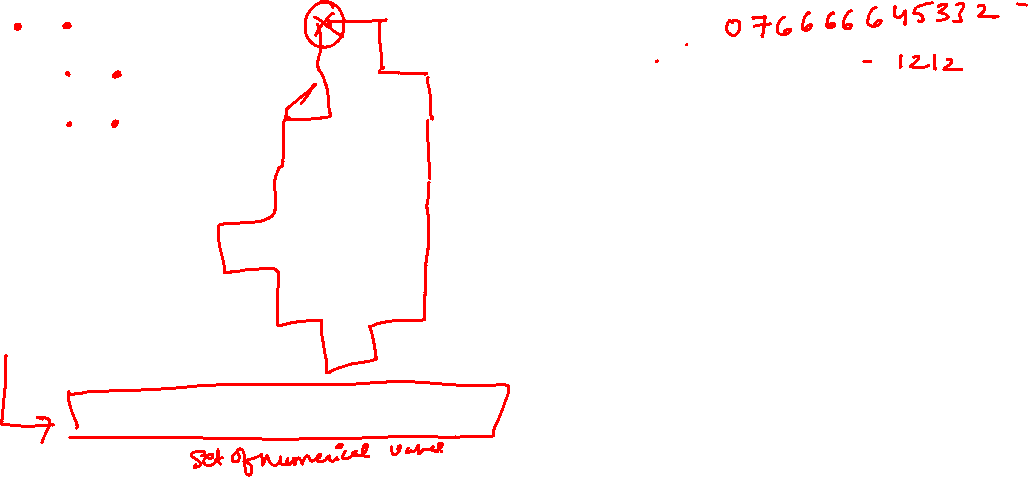 076666645332 -
- 1212
set of numerical value